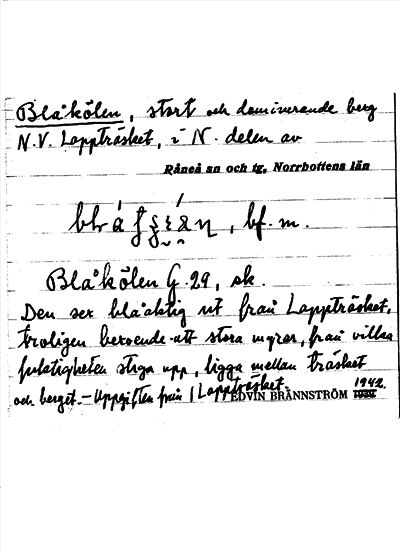 Blåkölen, stort och dominerande berg
N.V. Lappträsket, i N. delen av
Råneå sn och tg, Norrbottens län
bf. m.
Blåkölen G. 29, sk.
Den ser blåaktig ut från Lappträsket,
troligen beroende att stora myrar, från vilka
fuktigheten stiga upp, ligga mellan träsket
och berget. – Uppgiften från Lappträsket.
EDVIN BRÄNNSTRÖM 1942.